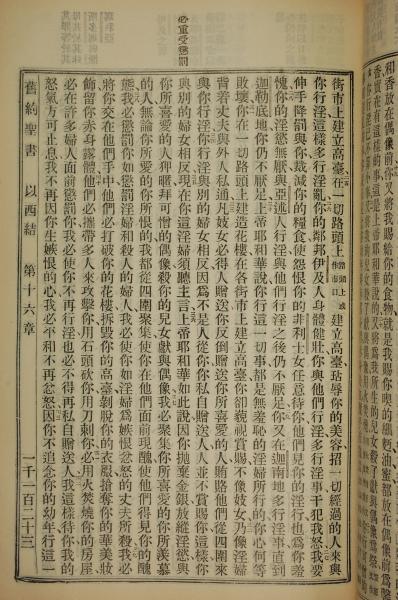 必重受懲罰
街市上建立高臺在一切路頭上建立高臺玷辱你的美容招一切經過的人來與
你行淫這樣多行淫亂你的鄰邦伊及人身體健壯你與他們行淫多行淫事干犯我怒我要
伸手降罰與你裁減你的糧食使怨恨你的非利士女任意待你他們見你的淫行也爲你羞
愧你的淫慾無厭與亞述人行淫與他們行淫之後仍不厭足你又在迦南地多行淫事直到
迦勒底地你仍不厭足上帝耶和華說你行這一切事都是無羞恥的淫婦所行的你心何等
敗壞你在一切路頭上建造花樓在各街市上建立高臺你卻藐視賞賜不像妓女乃像淫婦
背着丈夫與外人私通凡妓女必得人贈送你反倒贈送你所喜愛的人賄賂他們從四圍來
與你行淫你行淫與別的婦女相反因爲不是人從你你私自贈送人人並不賞賜你這樣你
與別的婦女相反現在你這淫婦須聽主言上帝耶和華如此說因你拋棄金銀放縱淫慾與
你所喜愛的人狎暱拜可憎的偶像殺你的兒女獻與偶像我必聚集你所喜愛的你所羨慕
的人無論你所愛的你所恨的我都從四圍聚集到你在他們面前現醜使他們得見你的醜
態我必懲罰你如懲罰淫婦和殺人的婦人我必使你如淫婦爲嫉恨忿怒的丈夫所殺我必
將你交在他們手中他們必打破你的花樓拆毀你的高臺剝脫你的衣服搶奪你的華美妝
飾留你赤身露體他們必攜帶多人來攻擊你用石頭砍你用刀刺你必用火焚燒你的房屋
必在許多婦人面前懲罰你我必使你不再行淫也必不得再私自贈送人我這樣待你我的
怒氣方可止息我不再因你生嫉恨的心我必平和不再忿怒因你不追念你的幼年行這一
舊約聖書　以西結　第十六章　一千一百二十三